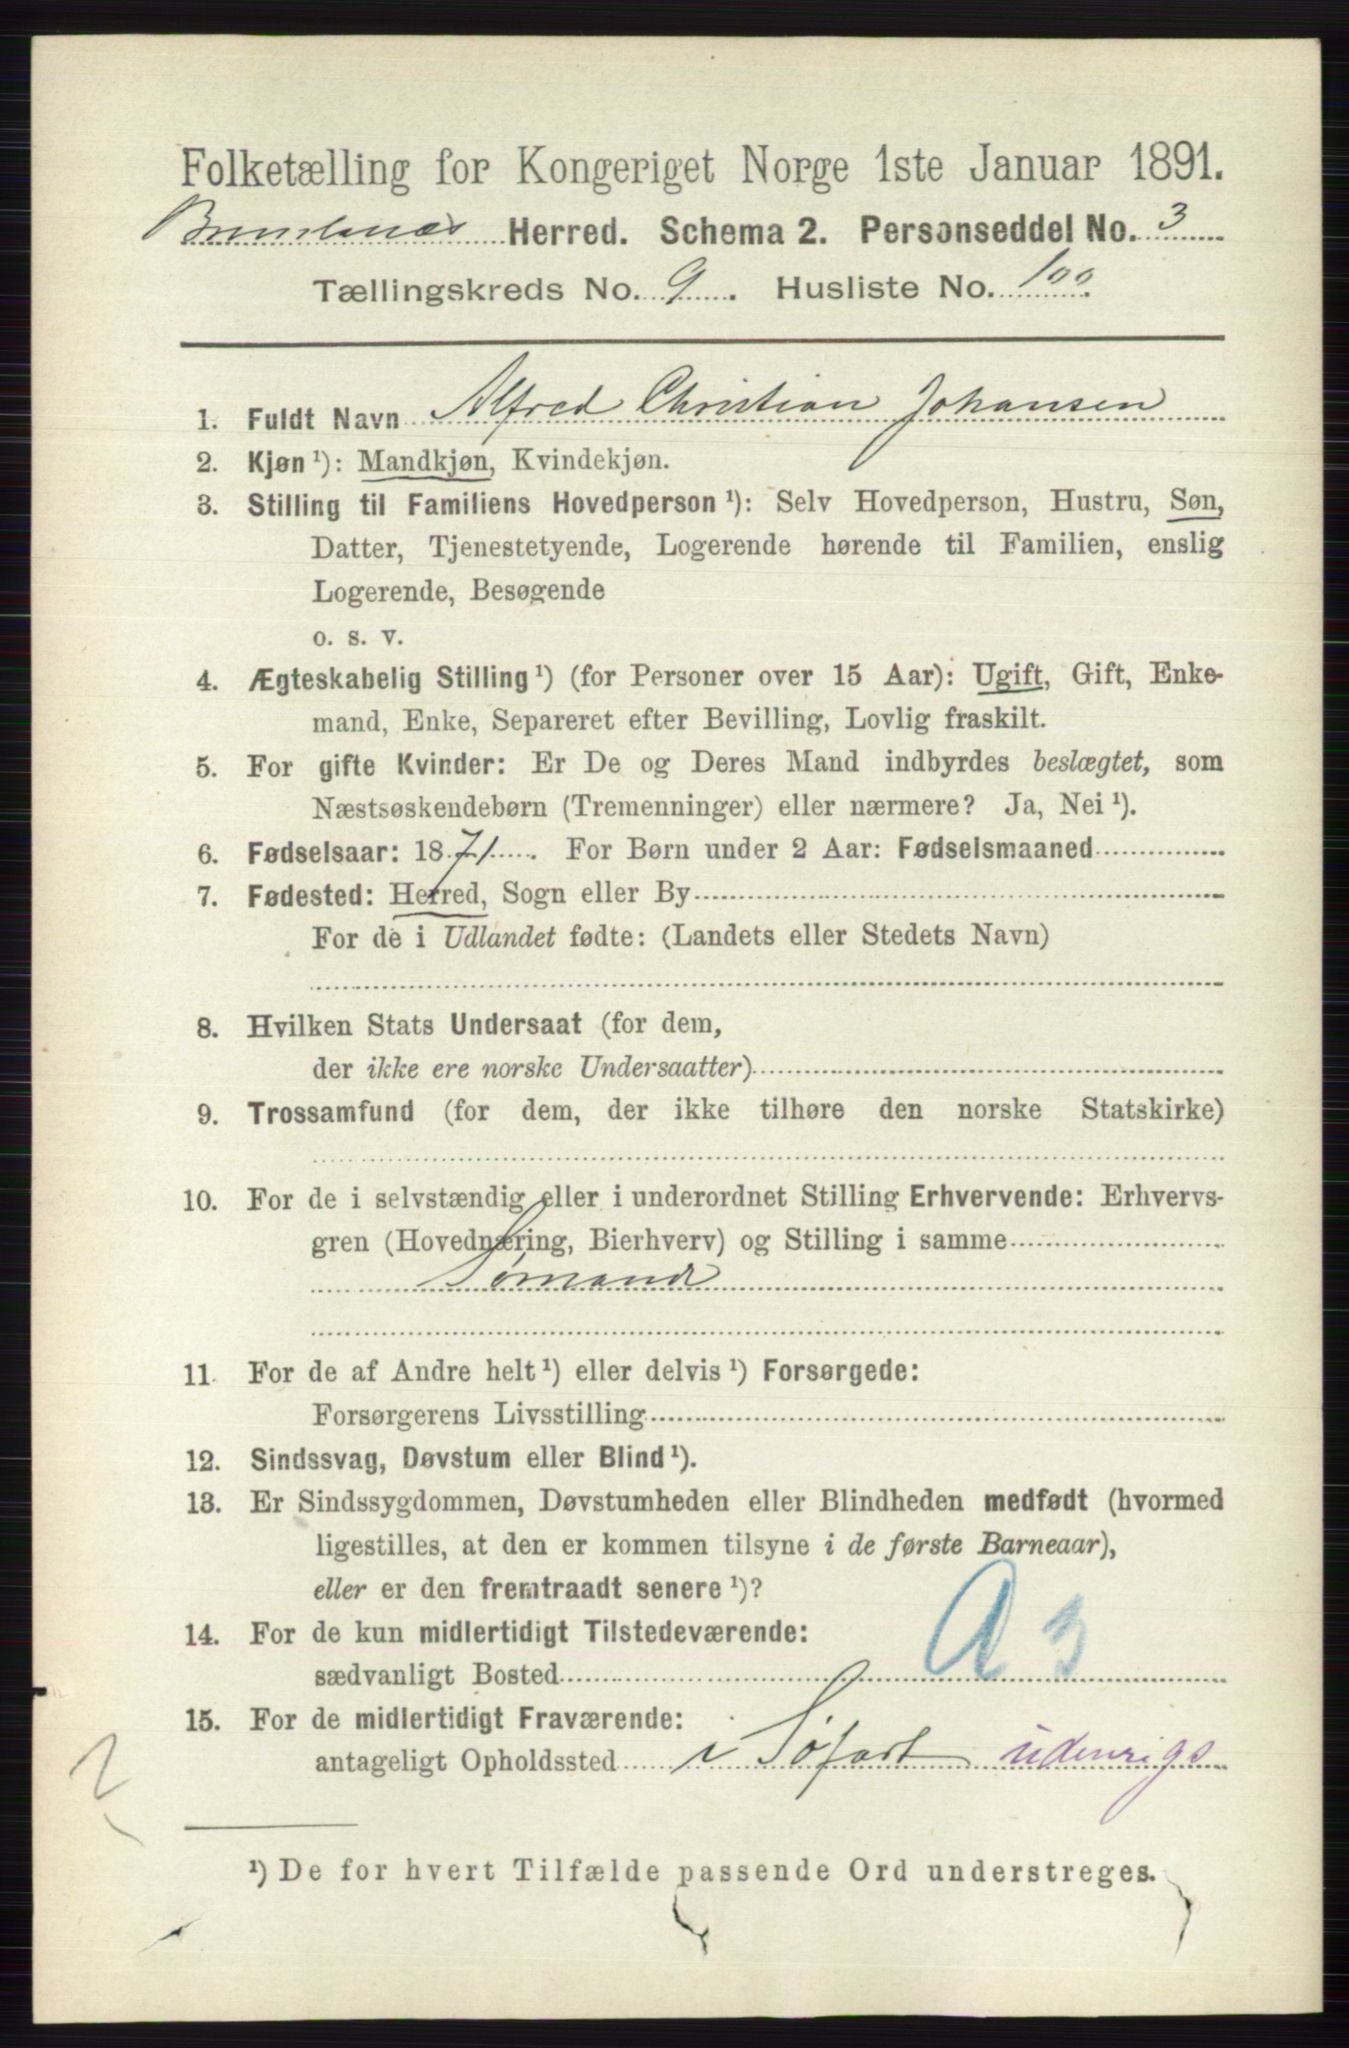 Folketælling for Kongeriget Norge 1ste Januar 1891.
Brunlanæs Herred. Schema 2. Personseddel No. 3
Tællingskreds No. 9. Husliste No. 100.
1. Fuldt Navn Alfred Christian Johansen
2. Kjøn ¹): Mandkjøn, Kvindekjøn.
3. Stilling til Familiens Hovedperson ¹): Selv Hovedperson, Hustru, Søn,
Datter, Tjenestetyende, Logerende hørende til Familien, enslig
Logerende, Besøgende
o. s. v.
4. Ægteskabelig Stilling ¹) (for Personer over 15 Aar): Ugift, Gift, Enke-
mand, Enke, Separeret efter Bevilling, Lovlig fraskilt.
5. For gifte Kvinder: Er De og Deres Mand indbyrdes beslægtet, som
Næstsøskendebørn (Tremenninger) eller nærmere? Ja, Nei ¹).
6. Fødselsaar: 1871. For Børn under 2 Aar: Fødselsmaaned
7. Fødested: Herred, Sogn eller By
For de i Udlandet fødte: (Landets eller Stedets Navn)
8. Hvilken Stats Undersaat (for dem,
der ikke ere norske Undersaatter)
9. Trossamfund (for dem, der ikke tilhøre den norske Statskirke)
10. For de i selvstændig eller i underordnet Stilling Erhvervende: Erhvervs-
gren (Hovednæring, Bierhverv) og Stilling i samme
Sømand
11. For de af Andre helt ¹) eller delvis ¹) Forsørgede:
Forsørgerens Livsstilling
12. Sindssvag, Døvstum eller Blind ¹).
13. Er Sindssygdommen, Døvstumheden eller Blindheden medfødt (hvormed
ligestilles, at den er kommen tilsyne i de første Barneaar),
eller er den fremtraadt senere ¹)?
14. For de kun midlertidigt Tilstedeværende:
sædvanligt Bosted
A 3
15. For de midlertidigt Fraværende:
antageligt Opholdssted i Søfart udenrigs
2
¹) De for hvert Tilfælde passende Ord understreges.